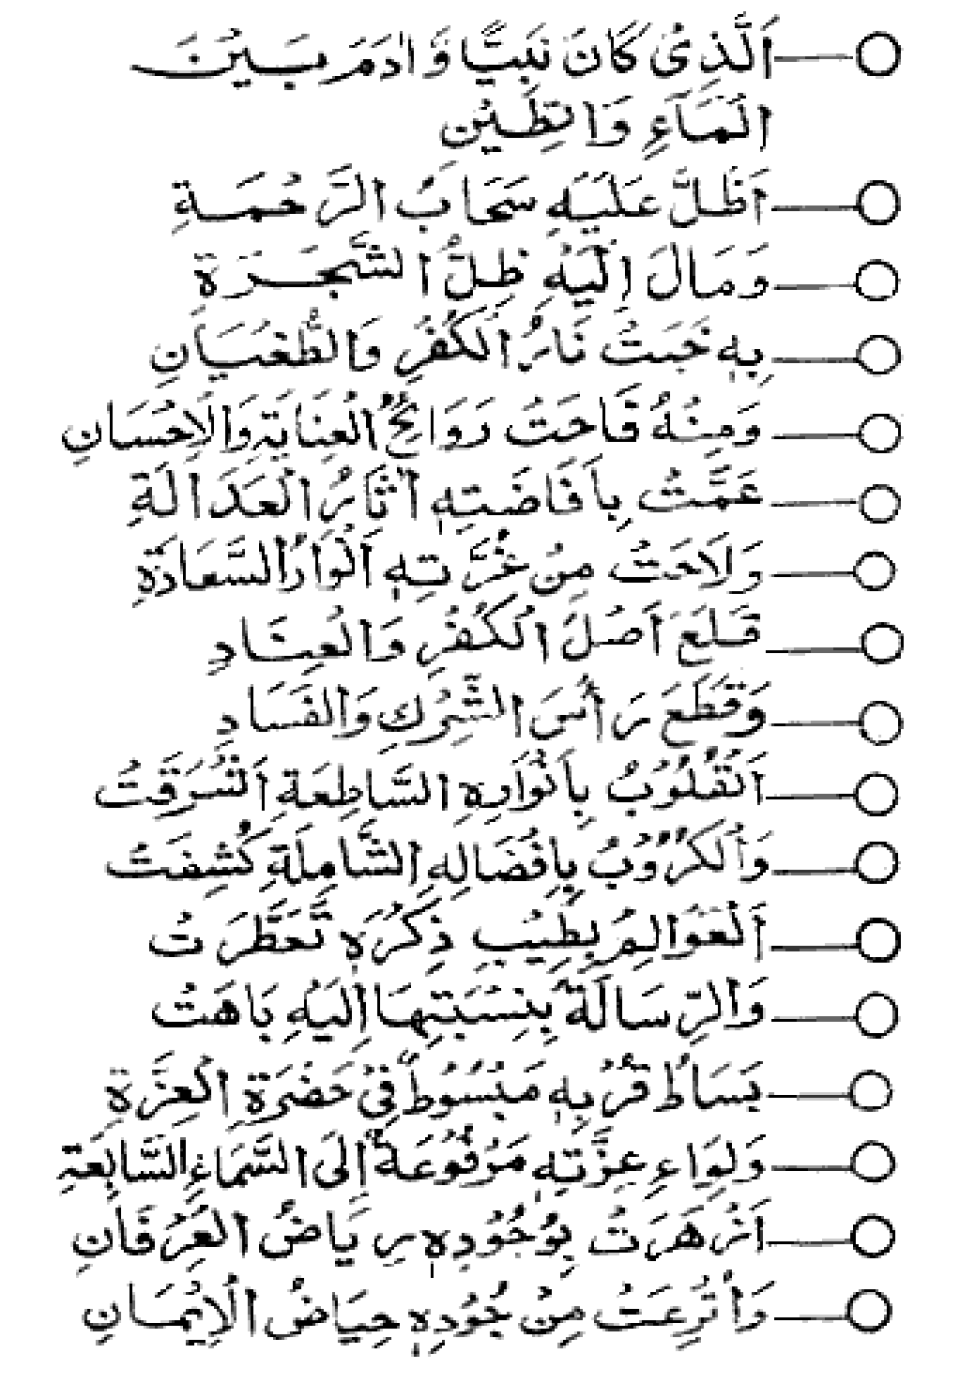 اَلَّذِىْ كَانَ نَبِيًّا وَّاٰدَمَ بَيْنَ
الْمَآءِ وَالطِّيْنِ
اَظَلَّ عَلَيْهِ سَحَابُ الرَّحْمَةِ
وَمَالَ اِلَيْهِ ظِلُّ الشَّجَرَةِ
بِهٖ خَبَتْ نَارُ الْكُفْرِ وَالطُّغْيَانِ
وَمِنْهُ فَاحَتْ رَوَائِحُ الْعِنَايَةِ وَالْاِحْسَانِ
عَمَّتْ بِاَفَاضَتِهٖ اٰثَارُ الْعَدَالَةِ
وَلَاحَتْ مِنْ غُرَّتِهٖ اَنْوَارُ السَّعَادَةِ
قَلَعَ اَصْلَ الْكُفْرِ وَالْعِنَادِ
وَقَطَعَ رَأْسَ الشِّرْكِ وَالْفَسَادِ
اَلْقُلُوْبُ بِاَنْوَارِهِ السَّاطِعَةِ اَشْرَقَتْ
وَالْكُرُوْبُ بِاِفْضَالِهِ الشَّامِلَةِ كُشِفَتْ
اَلْعَوَالِمُ بِطِيْبِ ذِكْرِهٖ تَعَطَّرَتْ
وَالرِّسَالَةُ بِنِسْبَتِهَا اِلَيْهِ بَاهَتْ
بَسَاطُ قُرْبِهٖ مَبْسُوْطٌ فِىْ حَضْرَةِ الْعِزَّةِ
وَلِوَاءِ عِزَّتِهٖ مَرْفُوْعَةٌ اِلَى السَّمَاءِ السَّابِعَةِ
اَزْهَرَتْ بِوُجُوْدِهٖ رِيَاضُ الْعِرْفَانِ
وَاُتْرِعَتْ مِنْ جُوْدِهٖ حِيَاضُ الْاِيْمَانِ